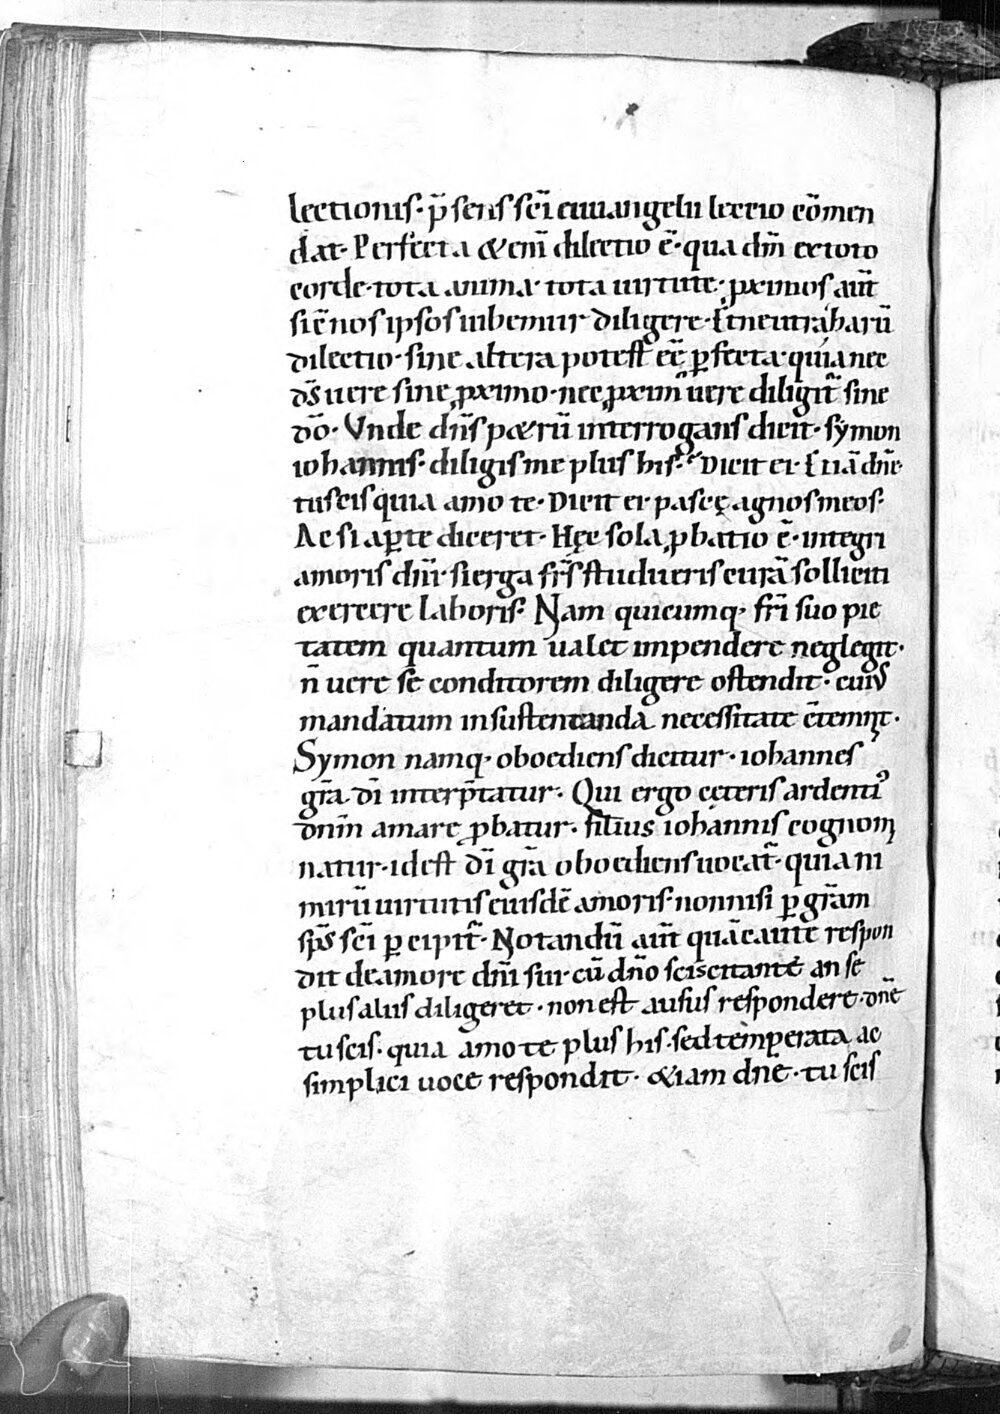 lectionis· p̄sens sc̄i euuangelii lectio cōmen
dat· Perfecta &eni̅ dilectio ē· qua dm̄ ex toto
corde· tota anima· tota uirtute· ꝓximos aut̄
sic̄ nos ipsos iubemur diligere· Et neutra harū
dilectio· sine altera potest ec̄c̄ ꝑfecta· quia nec
ds̄ uere sine ꝓximo· nec ꝓxim̄ uere diligit̄ sine
dō· Vnde dn̄s p&rū interrogans dicit· symon
iohannis· diligis me plus his· Dicit ei· Etiā dn̄e
tu scis quia amo te· Dicit ei· pasce agnos meos·
Ac si aꝑte diceret· Hęc sola ꝓbatio ē· integri
amoris dn̄i· si erga fr̄s studueris curā solliciti
exercere laboris· Nam quicumq· fr̄i suo pie
tatem quantum ualet impendere neglegit·
n̄ uere se conditorem diligere ostendit· cuiꝰ
mandatum in sustentanda necessitate c̄temnit·
Symon namq· oboediens dicitur· iohannes
gr̄a di̅ interp̄tatur· Qui ergo ceteris ardentiꝰ
dnm̄ amare ꝓbatur· filius iohannis cognom
natur· id est di̅ gr̄a oboediens uocat̄· quia ni
mirū uirtutis eiusdē amoris· non nisi ꝑ gr̄am
sp̄s sc̄i ꝑcipit̄· Notandū aut̄ quā caute respon
dit de amore dn̄i sui· cū dn̄o sciscitante an se
plus aliis diligeret· non est ausus respondere· dn̄e
tu scis· quia amo te plus his· sed temꝑata ac
simplici uoce respondit· &iam dn̄e· tu scis